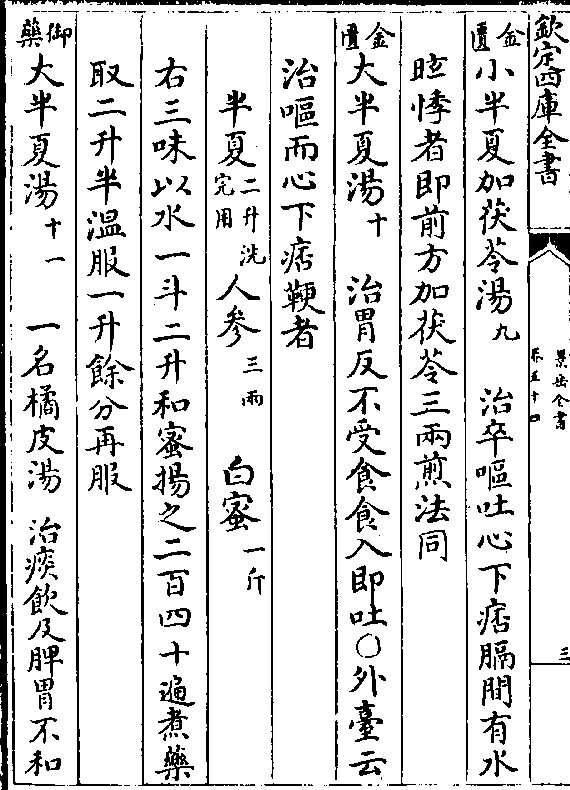 欽定四庫全書
景岳全書
卷五十四
三
金匱小半夏加茯苓湯九　治卒嘔吐心下痞膈間有水
眩悸者即前方加茯苓三兩煎法同
金匱大半夏湯十　治胃反不受食食入即吐〇外臺云
治嘔而心下痞鞕者
半夏二升洗完用　人參三兩　白蜜一斤
右三味以水一斗二升和蜜揚之二百四十遍煮藥
取二升半溫服一升餘分再服
御藥大半夏湯十一　一名橘皮湯　治痰飲及脾胃不和